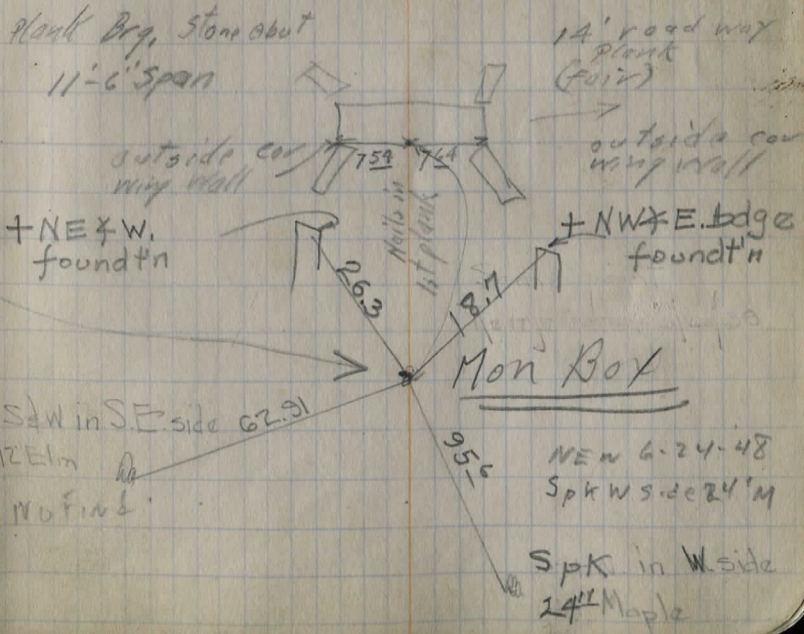 Plank Brg, Stone abut
11'-6" Span
14' road way
plank
(Fair)
outside cor
wing wall
7 59 7 64
outside cor
wing wall
Nails in
1st plank
+ NE & W.
foundt'n
+ NW & E. bdge
foundt'n
26.3
18.7
Mon Box
S&W in S.E. side 62.91
12" Elm
No Find
95.6
NEW 6-24-48
Spk W Side 24" M
Spk in W. side
24" Maple